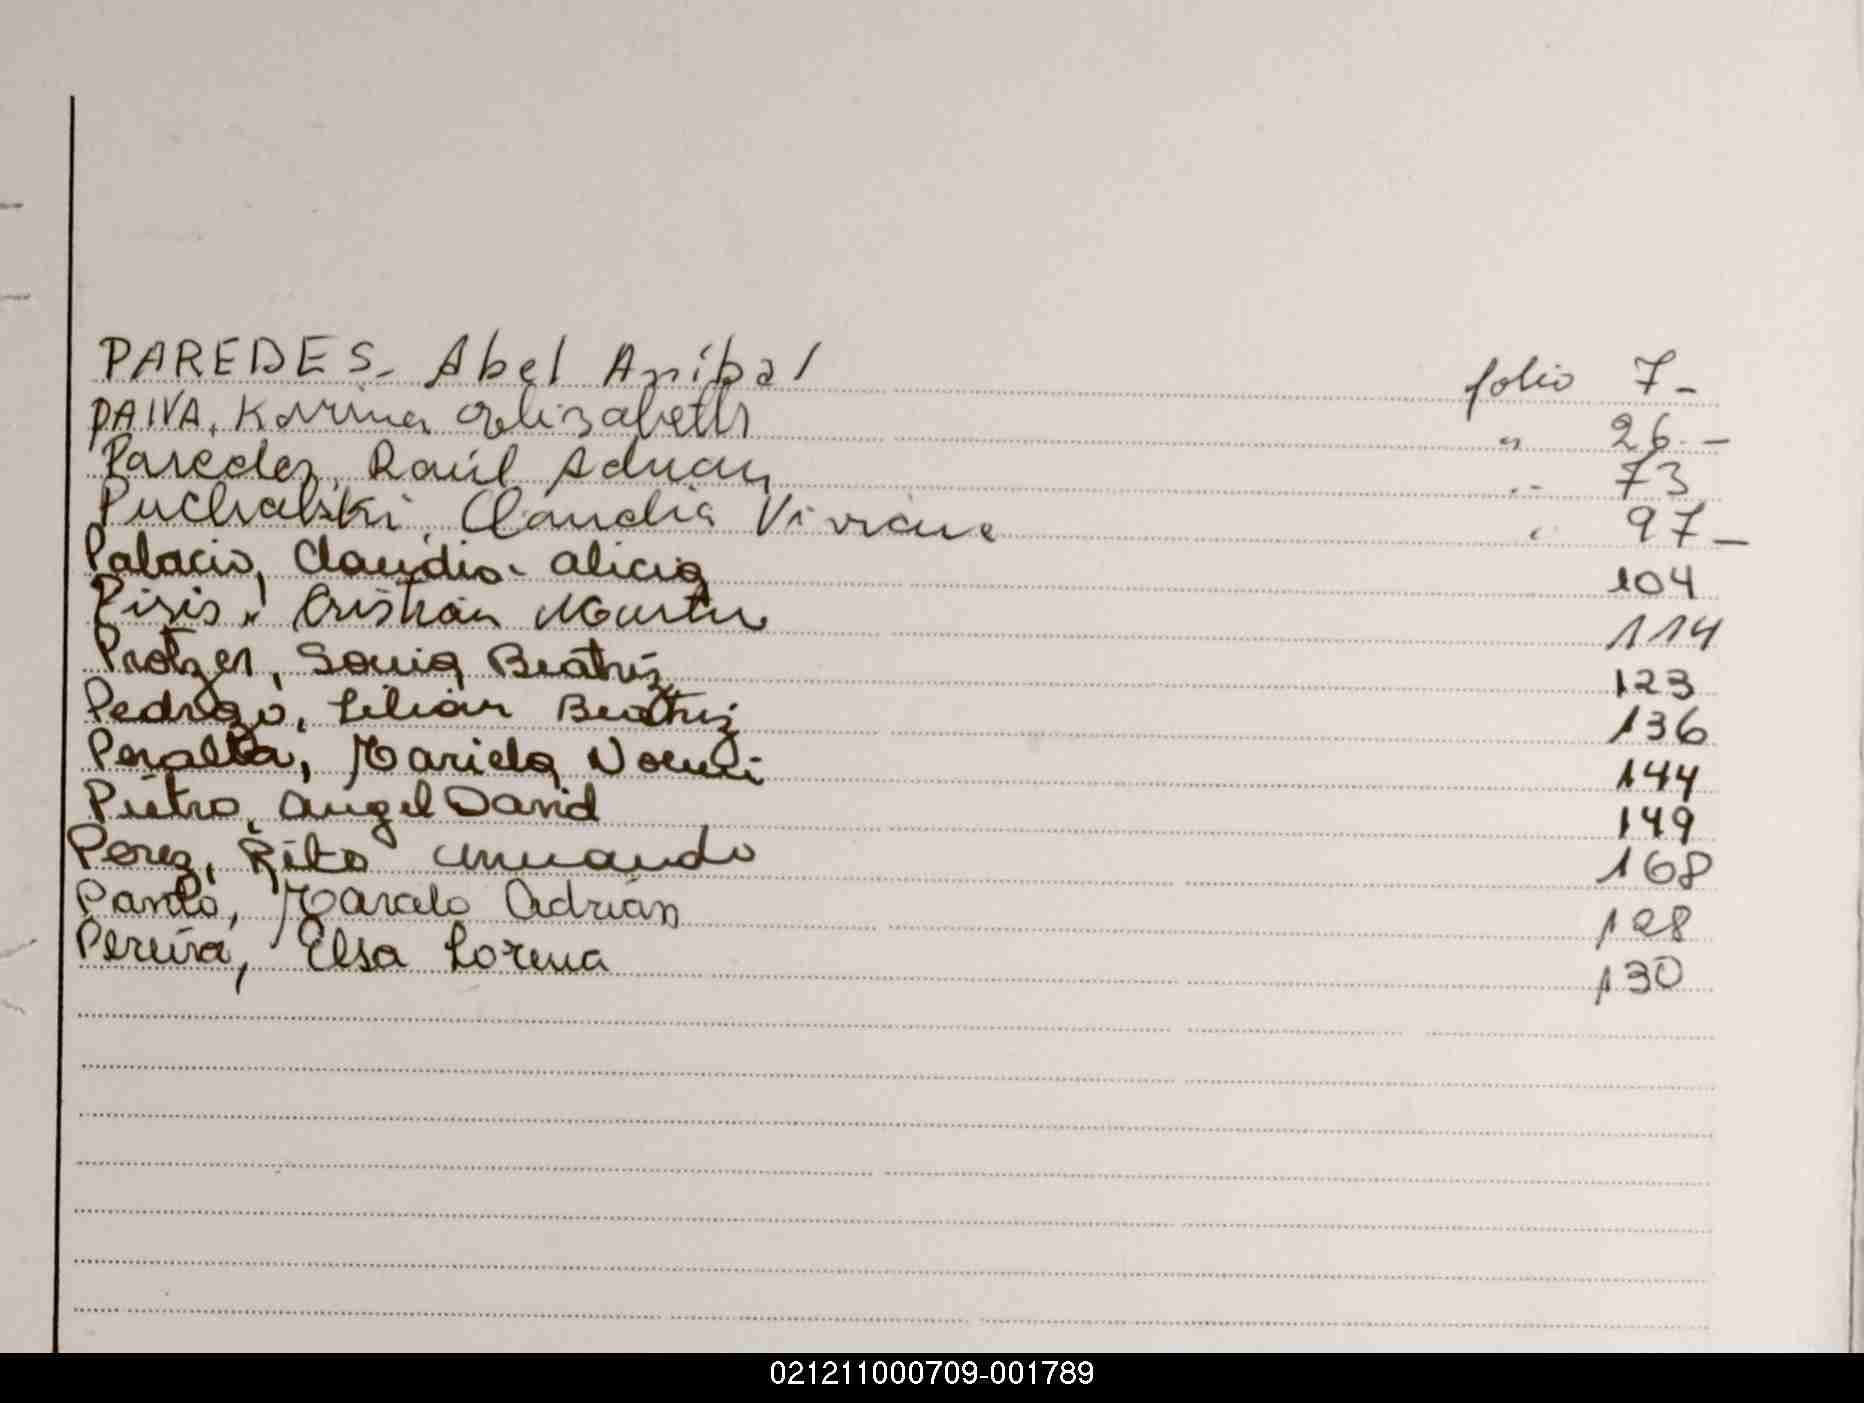 PAREDES- Abel Aníbal folio 7-
PAIVA. Karina Elizabeth " 26.-
Paredes, Raúl Adrian " 73
Puchalski, Claudia Viviane " 97-
Palacio, Claudia Alicia 104
Cristián Martin 114
Protzer, Sonia Beatriz 123
Pedrozo, Lilian Beatriz 136
Peralta, Mariela Noemi 144
Pietro, Angel David 149
Perez, Rito Armando 168
Marcelo Adrián 128
Pereira, Elsa Lorena 130
021211000709-001789